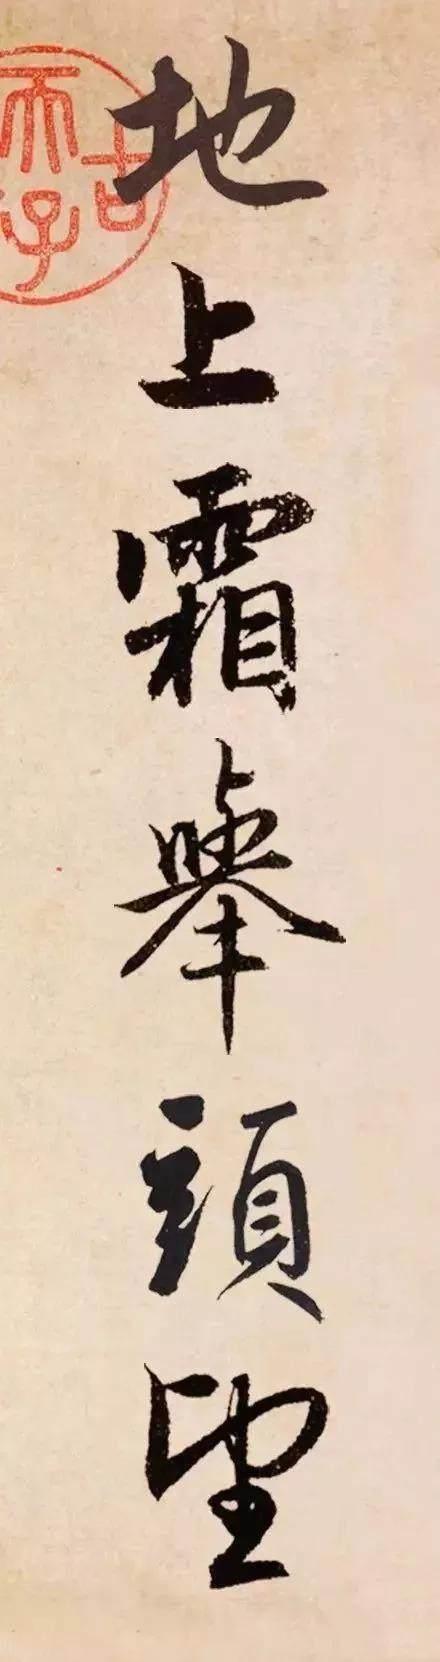 地上霜舉頭望